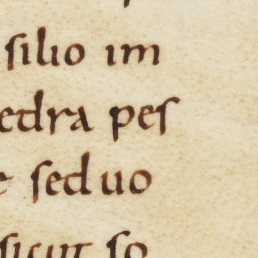 silio im
edra pes
sed uo
sicut so